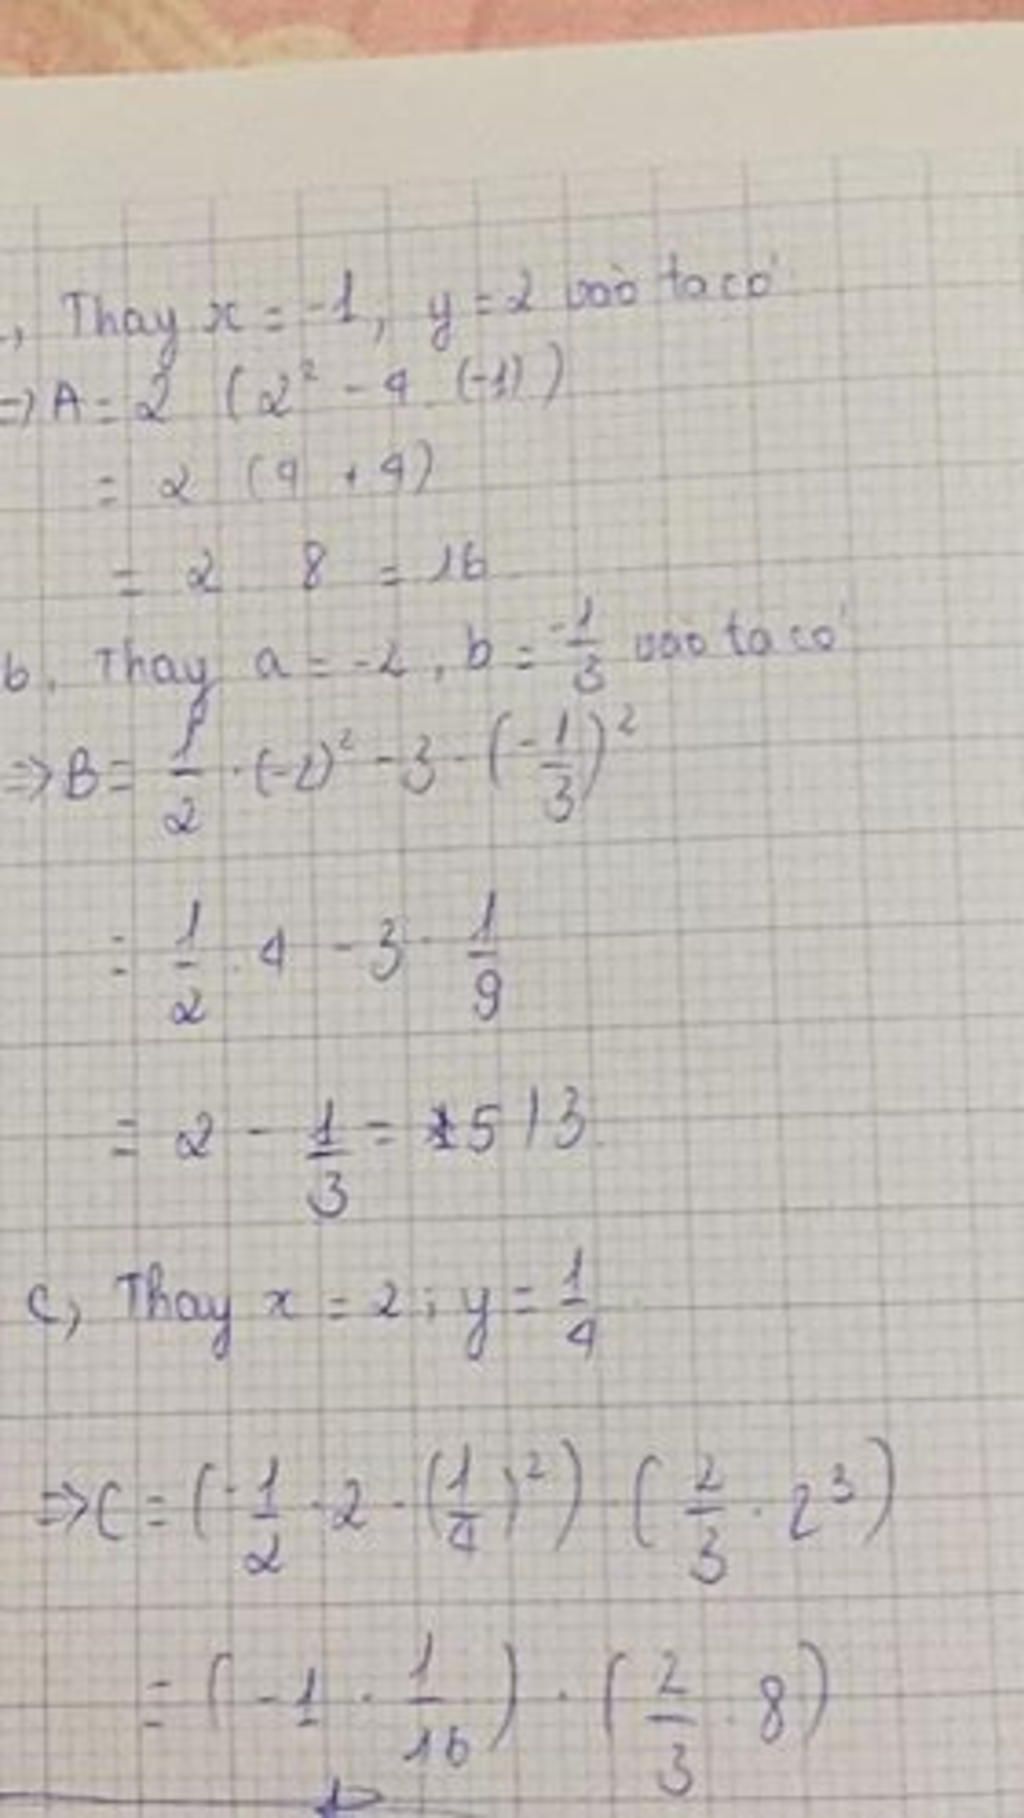 , Thay x = -1, y = 2 vào ta có
=> A = 2 (2² - 4 . (-1))
= 2 (4 + 4)
= 2 8 = 16
b. Thay a = -2, b = -1/3 vào ta có
=> B = 1/2 . (-2)² - 3 . (-1/3)²
= 1/2 . 4 - 3 . 1/9
= 2 - 1/3 = 5/3
c, Thay x = 2 ; y = 1/4
=> C = (-1/2 . 2 . (1/4)²) . (2/3 . 2³)
= (-1 . 1/16) . (2/3 . 8)